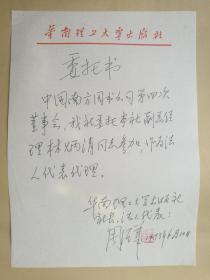 华南理工大学出版社
委托书
中国南方图书公司第四次
董事会，我社委托本社副总经
理林炳清同志参加，作为法
人代表代理。
华南理工大学出版社
社长、法人代表：